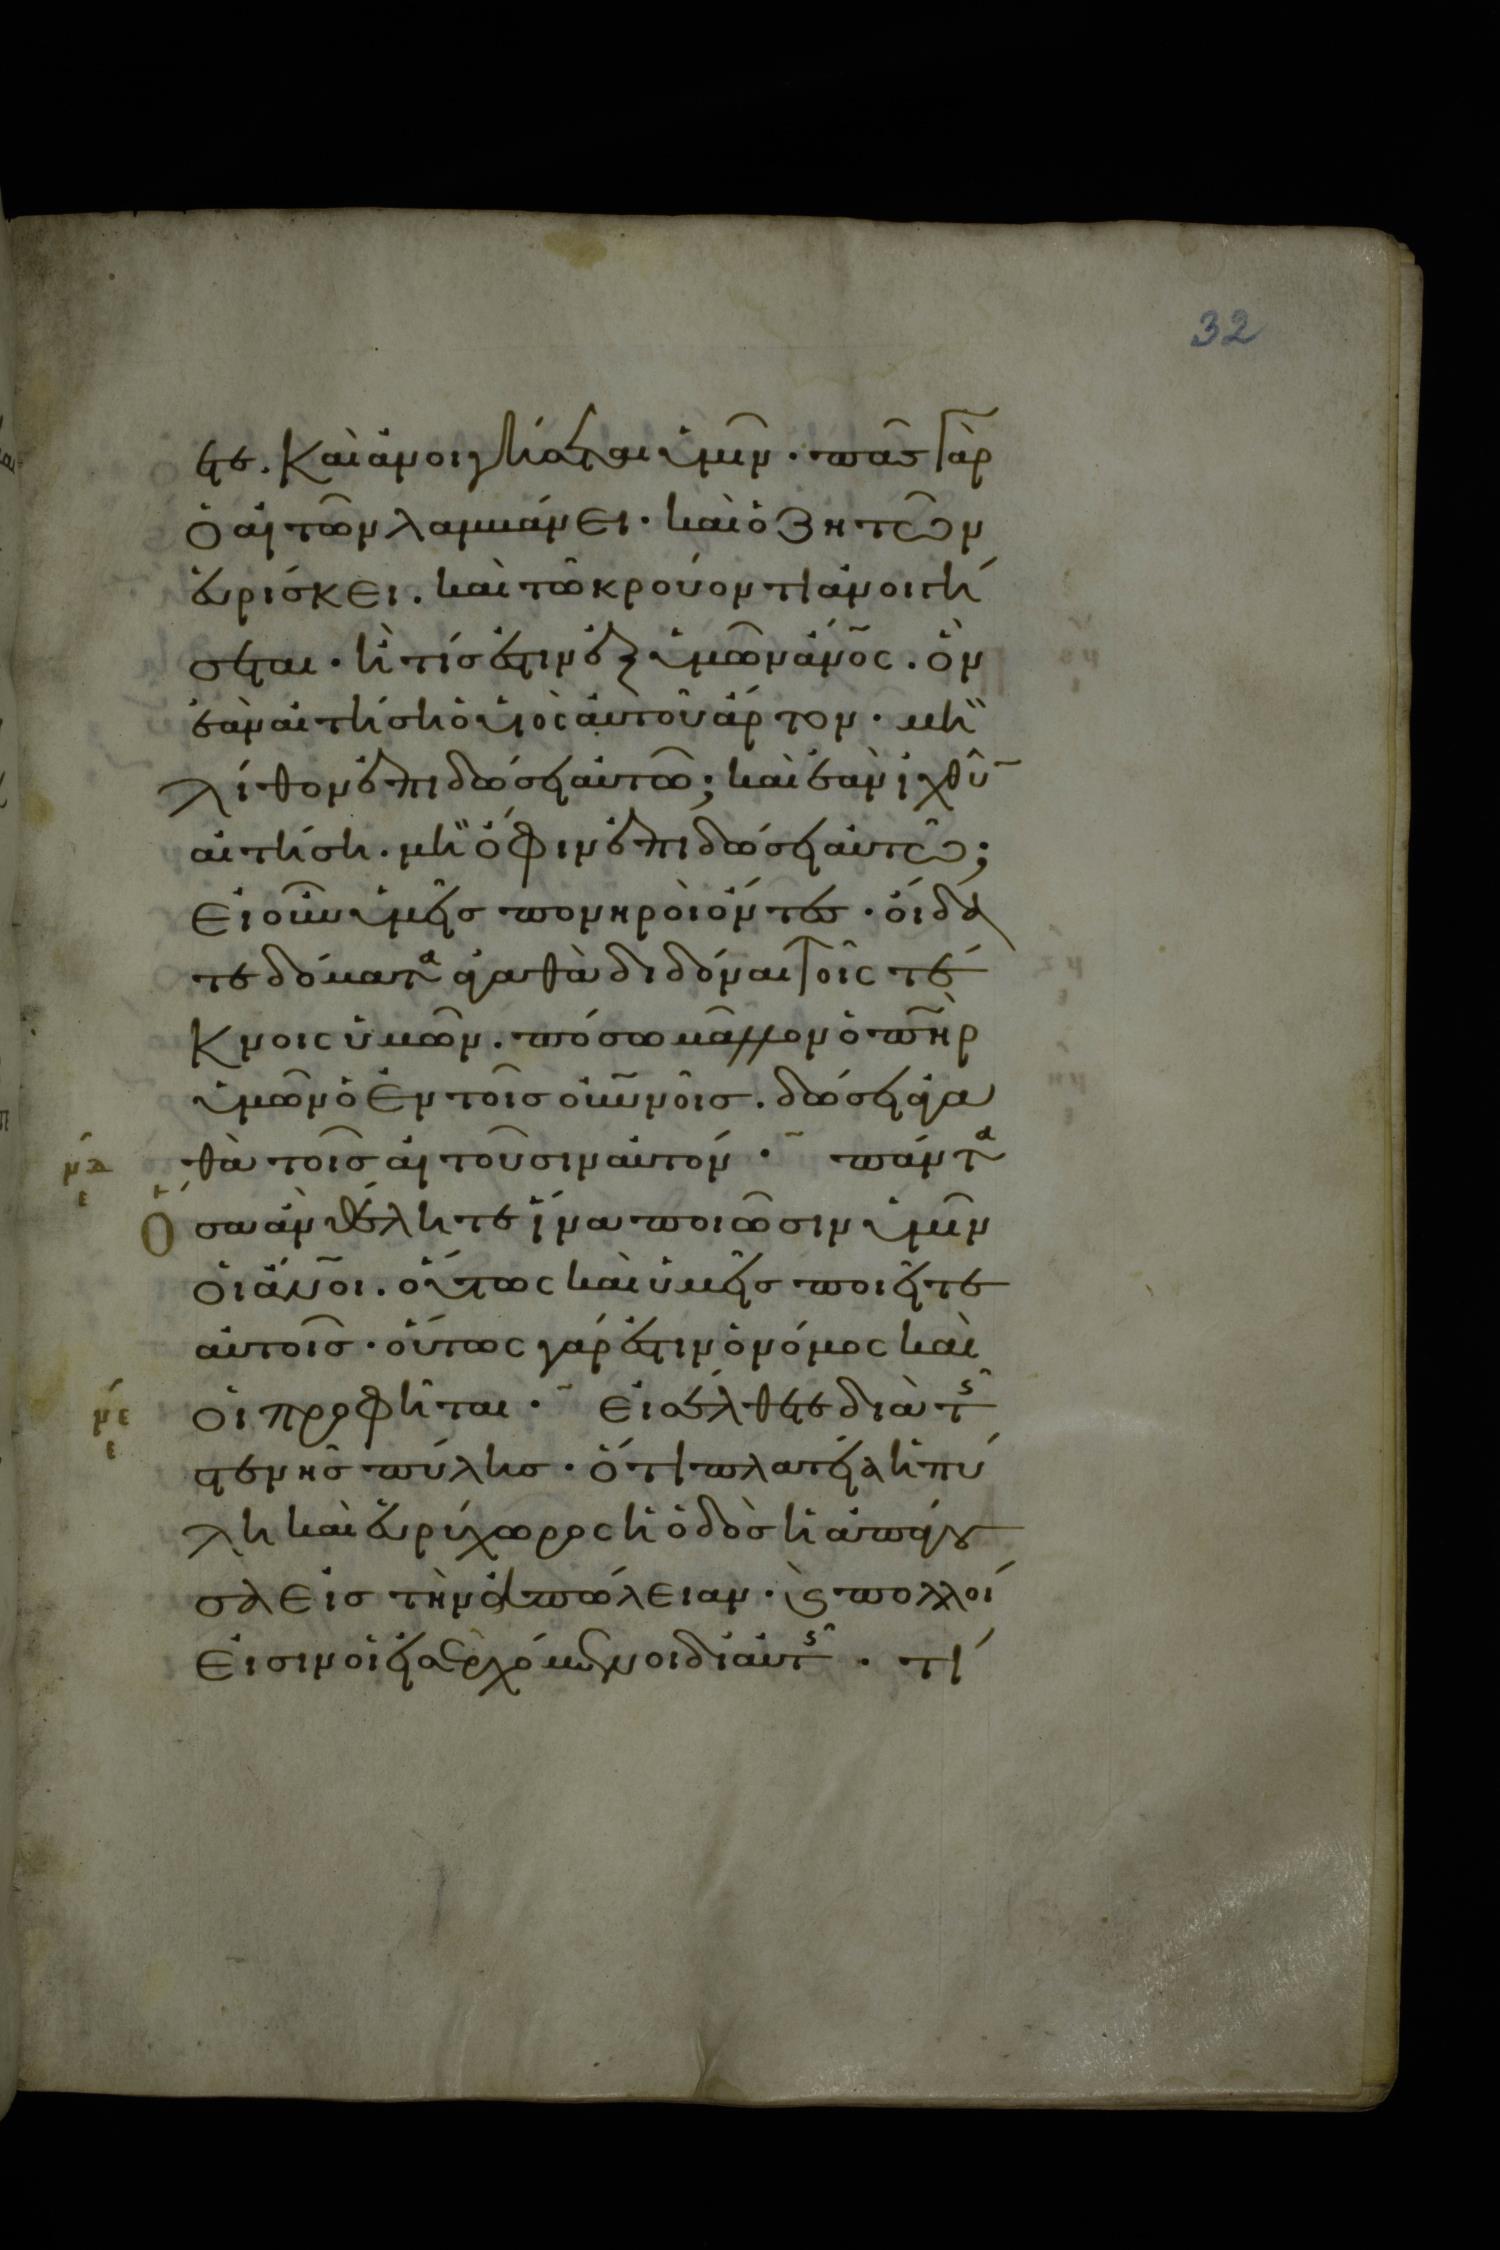 32
ετε. Και ἀνοιγήσεται ὑμῖν· πᾶς γὰρ
ὁ αἰτῶν λαμβάνει· καὶ ὁ ζητῶν
εὑρίσκει. καὶ τῶ κρούοντι ἀνοιγή
σεται· ἢ τίς ἐστιν ἐξ ὑμῶν ἄν̅ος. ὃν
ἐὰν αἰτήση ὁ υἱὸς αὐτοῦ ἄρτον· μὴ
λίθον ἐπιδώσει αὐτῶ; καὶ ἐὰν ἰχθῦ̅
αἰτήση. μὴ ὄφιν ἐπιδώσει αὐτῶ;
Εἰ οὖν ὑμεῖς πονηροὶ ὄντες· οἴδα
τε δόματα ἀγαθὰ διδόναι τοῖς τέ
κνοις ὑμῶν. πόσω μᾶλλον ὁ π̅ηρ
ὑμῶν ὁ ἐν τοῖς οὐ̅νοῖς. δώσει ἀγα
μδ ε θὰ τοῖς αἰτοῦσιν αὐτόν· πάντα
Ὅσα ἂν θέλητε ἵνα ποιῶσιν ὑμῖν
οἱ ἄν̅οι. οὕτως καὶ ὑμεῖς ποιεῖτε
αὐτοῖς· οὕτως γάρ ἐστιν ὁ νόμος καὶ
νε ε οἱ προφῆται· Εἰσέλθετε διὰ τῆς
στενῆς πύλης. ὅτι πλατεῖα ἡ πύ
λη καὶ εὐρύχωρος ἡ ὁδὸς ἡ ἀπάγου
σα εἰς τὴν ἀπώλειαν· καὶ πολλοί
εἰσιν οἱ εἰσερχόμενοι δι' αὐτῆς. τί